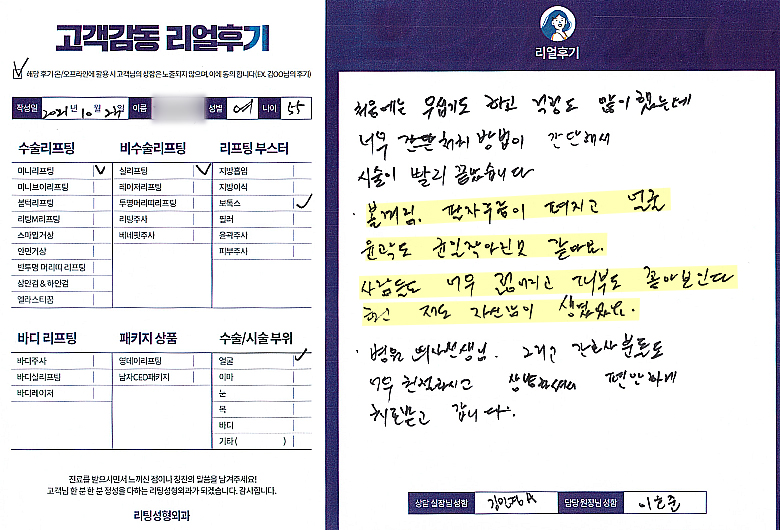 고객감동 리얼후기
해당 후기 온/오프라인에 활용 시 고객님의 성함은 노출되지 않으며, 이에 동의 합니다(EX. 김OO님의 후기)
작성일 2021년 10월 23일 이름 성별 여 나이 55
수술리프팅
미니리프팅
미니브이리프팅
센터리프팅
리팅M리프팅
스마일거상
안면거상
반투명 머리띠 리프팅
상안검 & 하안검
엘라스티꿈
비수술리프팅
실리프팅
레이저리프팅
투명머리띠리프팅
리팅주사
베네핏주사
리프팅 부스터
지방흡입
지방이식
보톡스
필러
윤곽주사
피부주사
바디 리프팅
바디주사
바디실리프팅
바디레이저
패키지 상품
영데이리프팅
남자CEO패키지
수술/시술 부위
얼굴
이마
눈
목
바디
기타( )
진료를 받으시면서 느끼신 점이나 칭찬의 말씀을 남겨주세요!
고객님 한 분 한 분 정성을 다하는 리팅성형외과가 되겠습니다. 감사합니다.
리팅성형외과
리얼후기
처음에는 무섭기도 하고 걱정도 많이 했는데
너무 처치 방법이 간단해서
시술이 빨리 끝났습니다
· 볼꺼짐, 팔자주름이 펴지고 얼굴
윤곽도 갸름 같아요.
사람들도 너무 젊어지고 피부도 좋아보인다
하고 저도 자신감이 생겼어요.
· 병원 의사선생님, 그리고 간호사분들도
너무 친절하시고 상냥하셔서 편안하게
치료받고 갑니다.
상담 실장님 성함
담당 원장님 성함 이호준